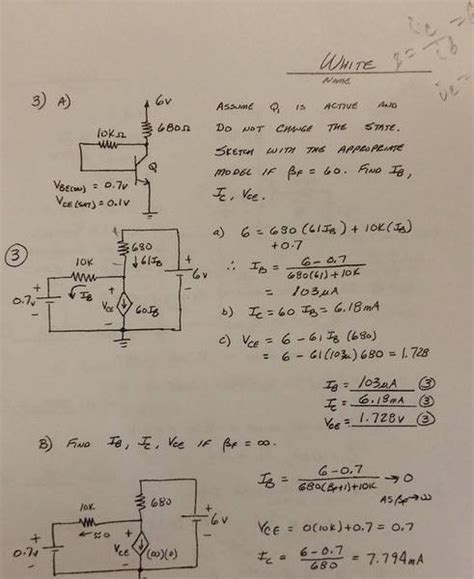 WHITE
NAME
3) A)
6V
10KΩ
680Ω
Q
VBE(ON) = 0.7V
VCE(SAT) = 0.1V
ASSUME Q, IS ACTIVE AND
DO NOT CHANGE THE STATE.
SKETCH WITH THE APPROPRIATE
MODEL IF βF = 60. FIND IB,
IC, VCE.
3
10K
680
↓61IB
6V
0.7V
IB
VCE
60IB
a) 6 = 680(61IB) + 10K(IB)
+0.7
∴ IB = 6-0.7
680(61)+10K
= 103μA
b) IC = 60 IB = 6.18mA
c) VCE = 6 - 61 IB (680)
= 6 - 61(103μ)680 = 1.728
IB = 103μA 3
IC = 6.18mA 3
VCE = 1.728V 3
B) FIND IB, IC, VCE IF βF = ∞.
10K
≈0
680
6V
0.7V
VCE
(∞)(0)
IB = 6-0.7
680(βF+1)+10K
→0
AS βF→∞
VCE = 0(10K)+0.7 = 0.7
IC = 6-0.7
680
= 7.794mA